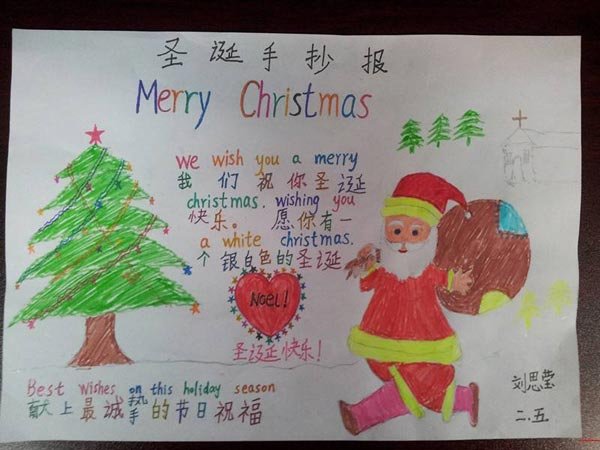 圣诞手抄报
Merry Christmas
we wish you a merry
我们祝你圣诞
christmas. wishing you
快乐。愿你有一
a white christmas.
个银白色的圣诞
Noel!
圣诞正快乐!
Best wishes on this holiday season
献上最诚挚的节日祝福
刘思莹
二.五